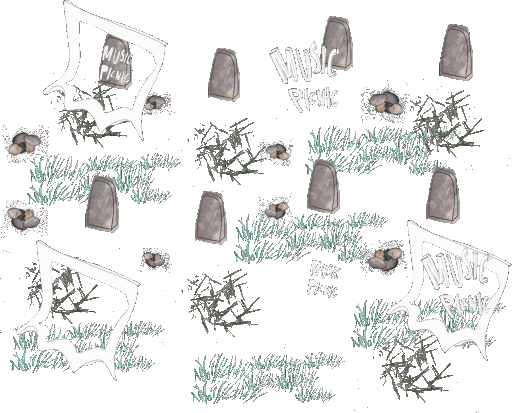 MUSIC
PICNIC
MUSIC
PICNIC
MUSIC
PICNIC
MUSIC
PICNIC